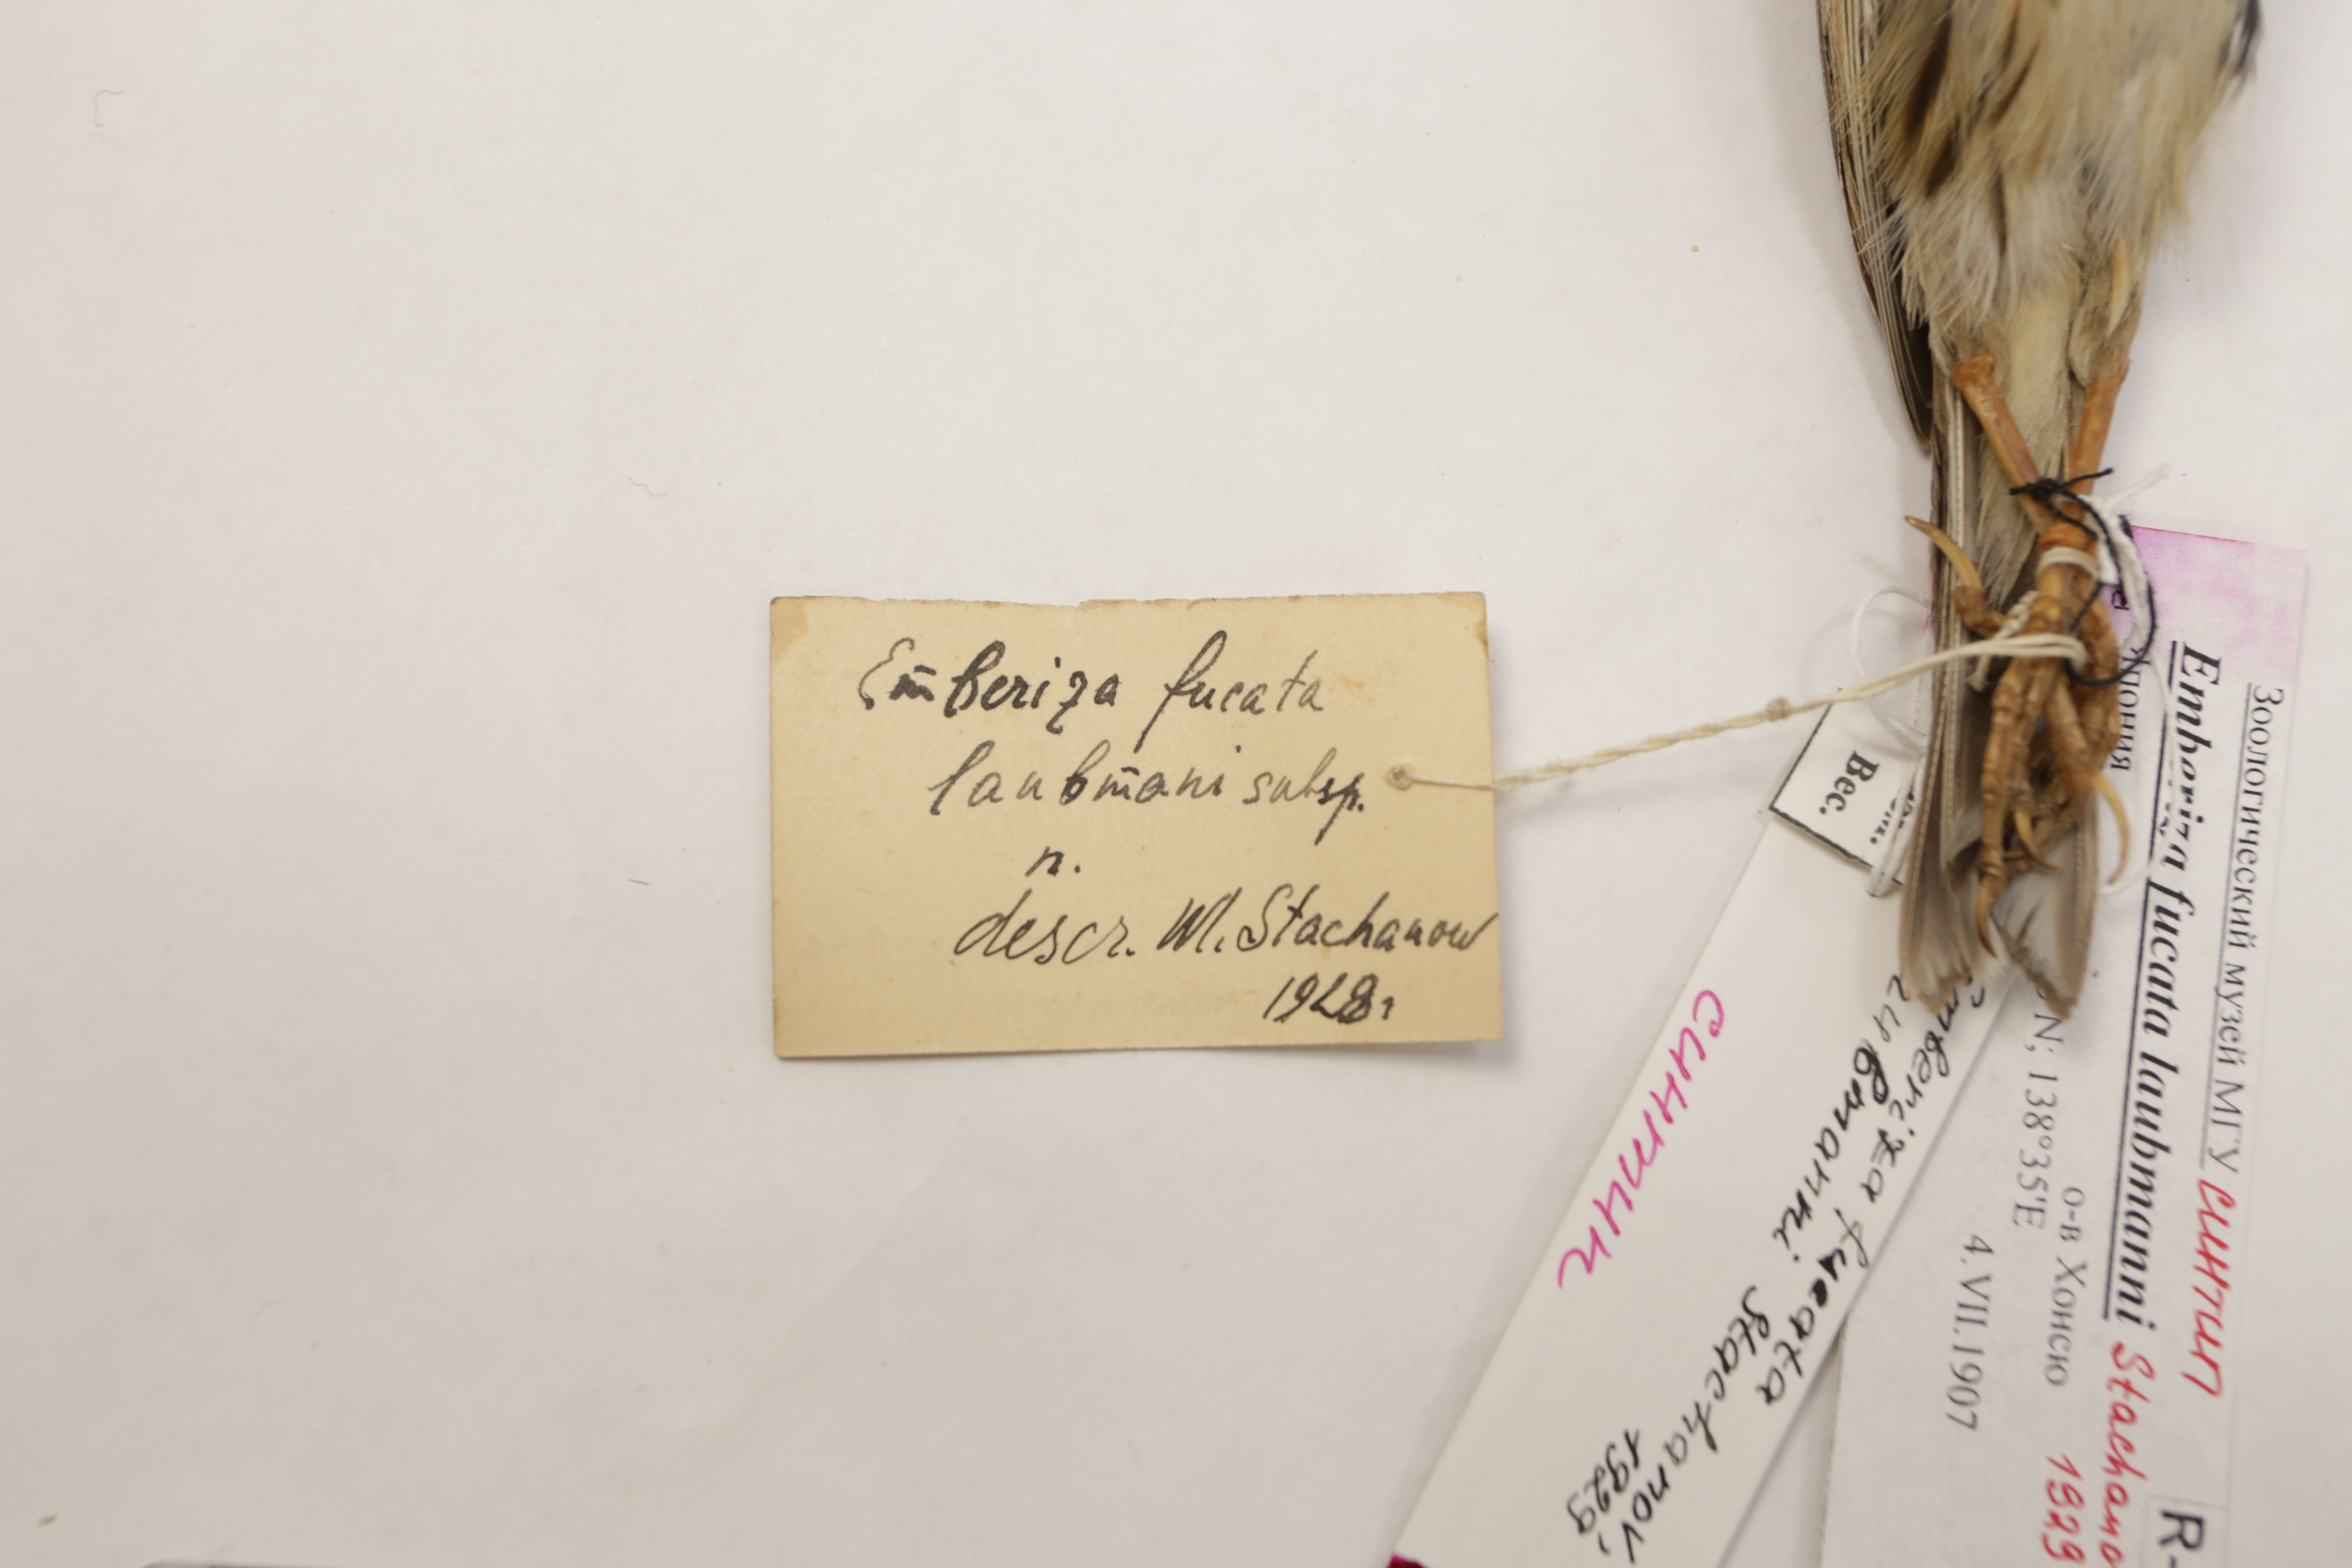 Em̄beriza fucata
laubm̄ani subsp.
n.
descr. Wl. Stachanow
1928г
Вес.
синтип
Emberiza fucata
laubmanni Stachanov,
1929
Зоологический музей МГУ синтип
Emberiza fucata laubmanni Stachano
1929
Япония
о-в Хонсю
N; 138°35'E
4.VII.1907
R-